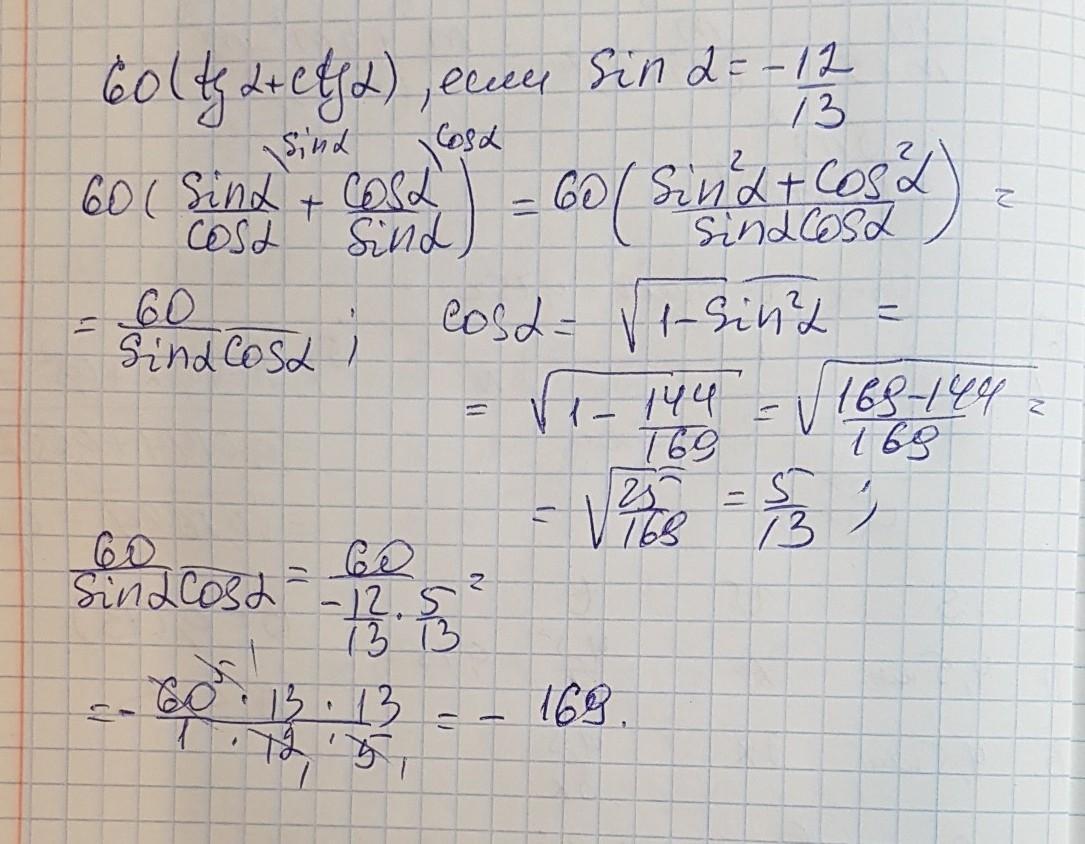 60(tg α+ctg α), если Sin α = -12/13
60( Sinα/cosα \sinα + cosα/sinα \cosα ) = 60( Sin²α+cos²α / sinαcosα ) =
= 60/SinαCosα ; cosα = √1-Sin²α =
= √1 - 144/169 = √169-144/169 =
= √25/169 = 5/13 ;
60/SinαCosα = 60/-12/13 · 5/13 =
= - 60 5 1 · 13 · 13 / 1 · 12 1 · 5 1 = - 169.